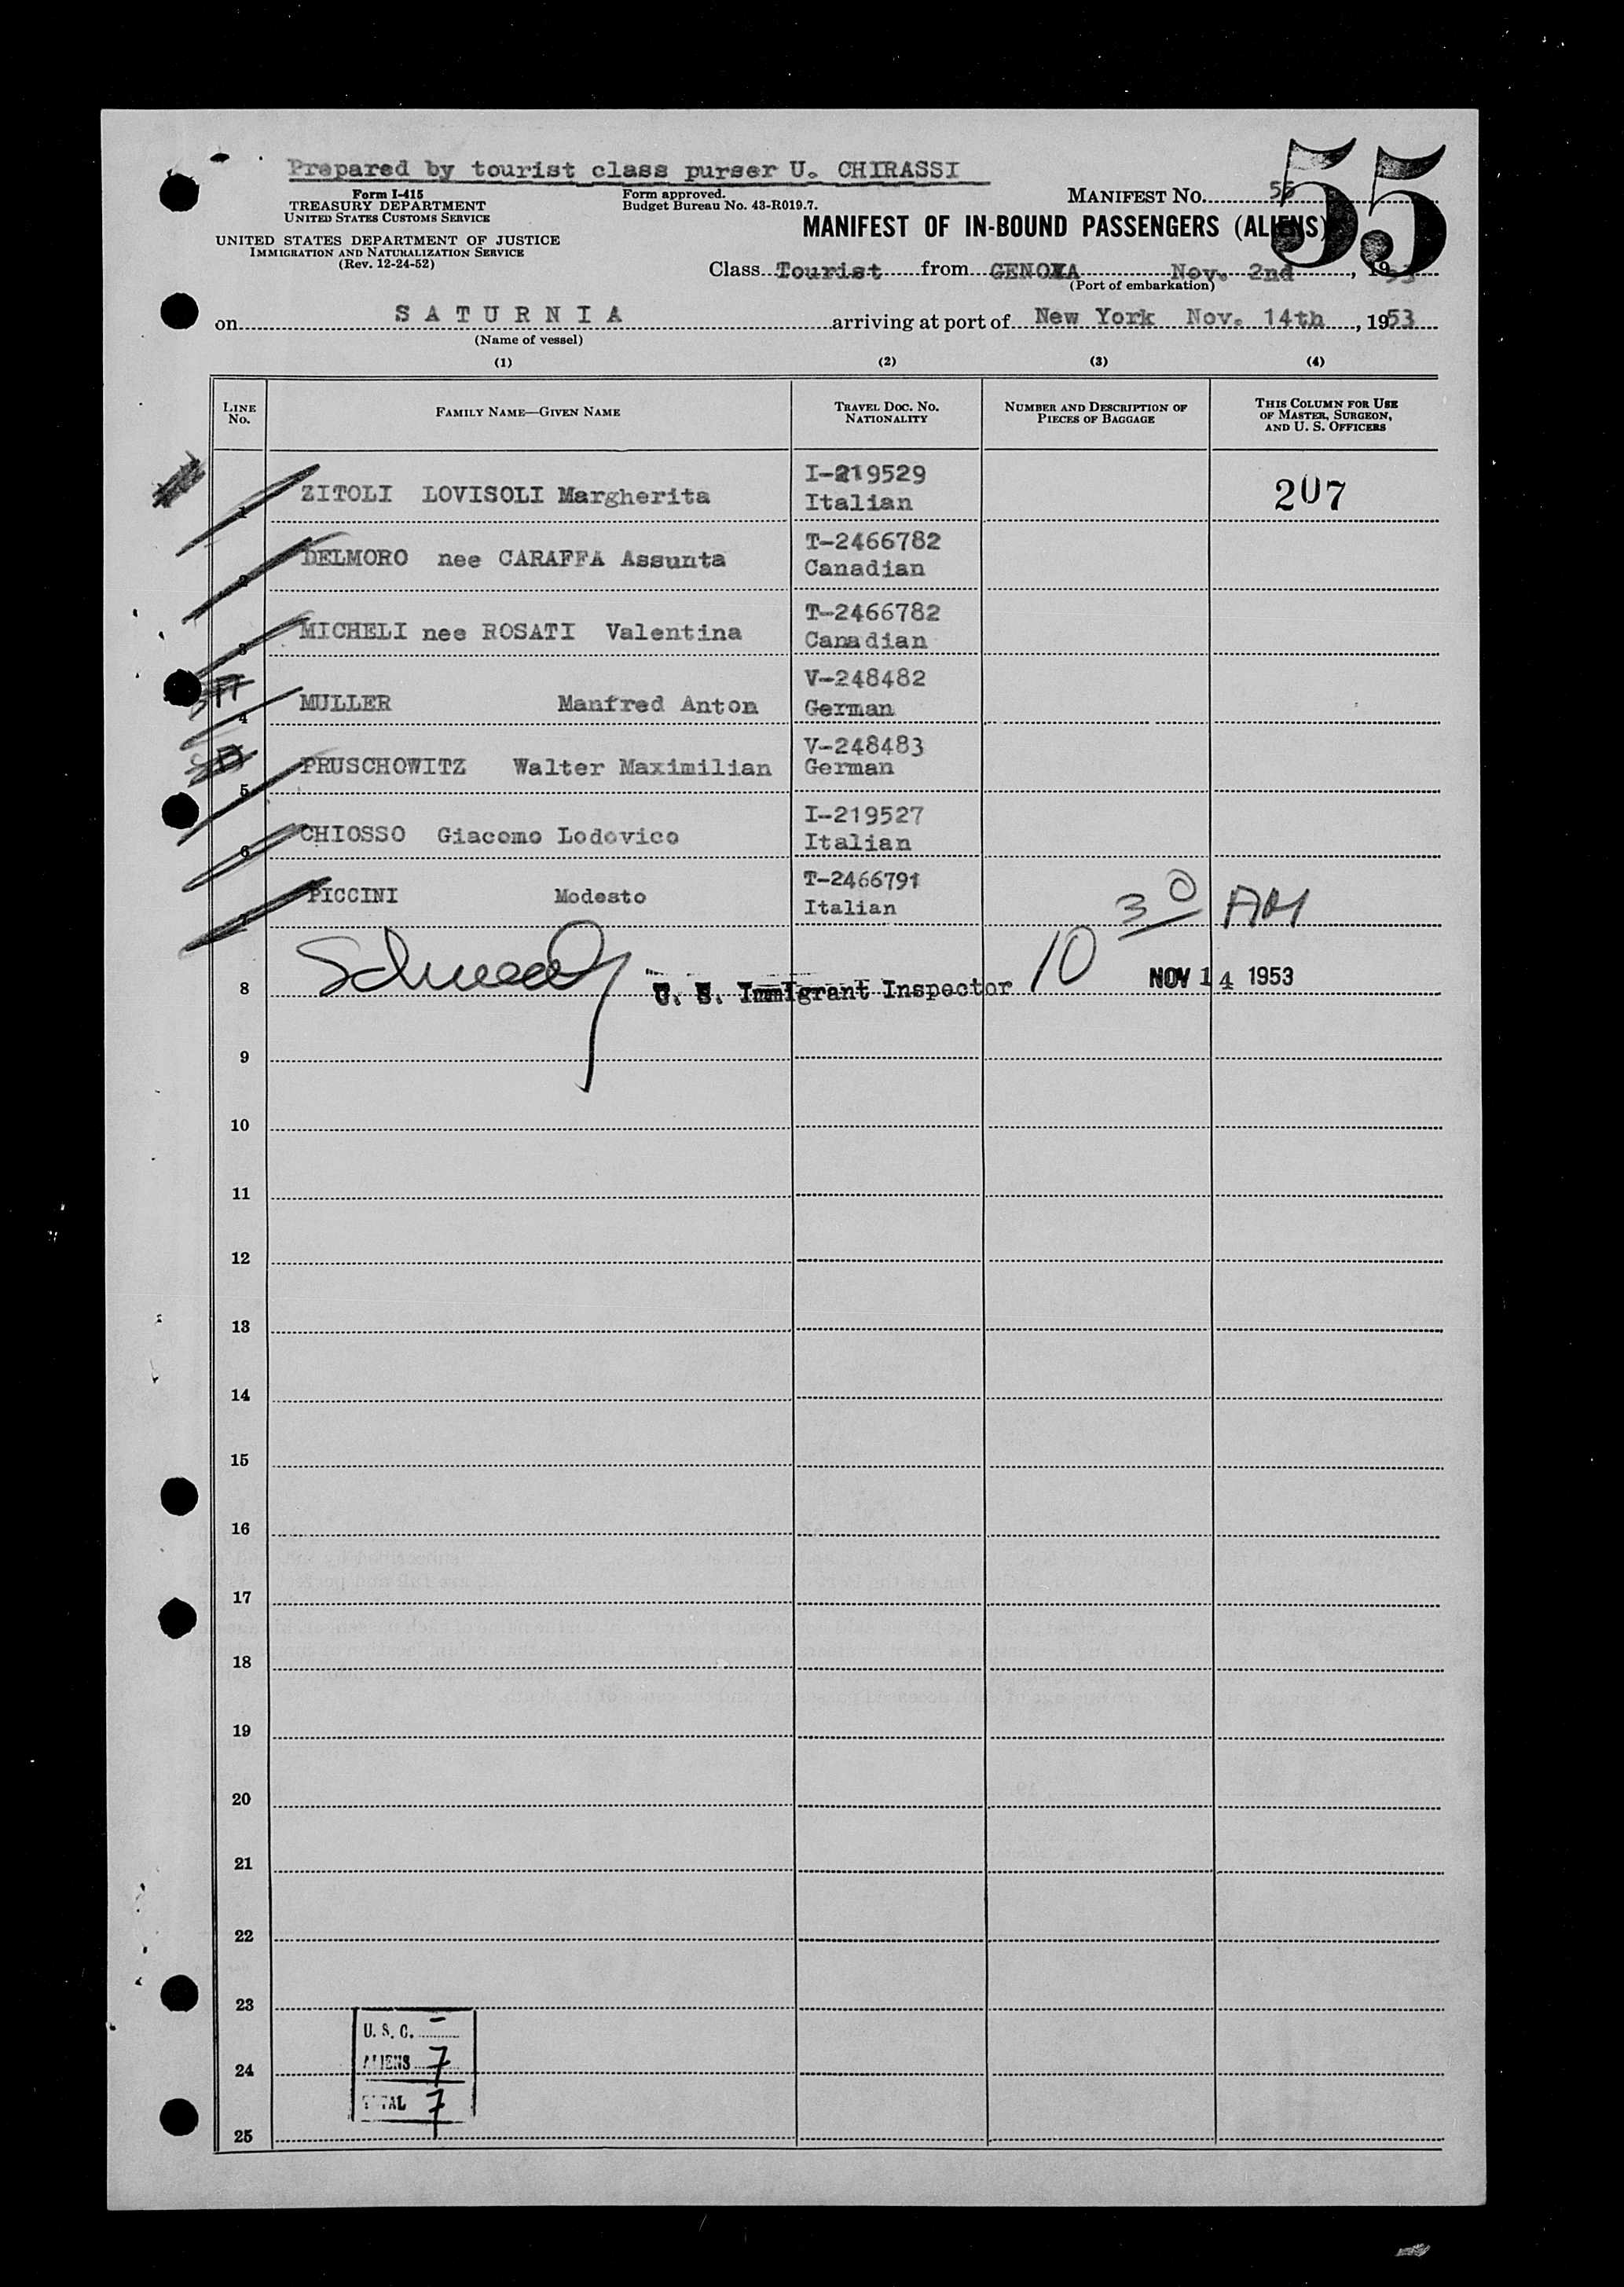 Prepared by tourist class purser U. CHIRASSI
55
Form I-415
TREASURY DEPARTMENT
UNITED STATES CUSTOMS SERVICE
UNITED STATES DEPARTMENT OF JUSTICE
IMMIGRATION AND NATURALIZATION SERVICE
(Rev. 12-24-52)
Form approved.
Budget Bureau No. 43-R019.7.
MANIFEST No. 55
MANIFEST OF IN-BOUND PASSENGERS (ALIENS)
Class Tourist from GENOVA Nov. 2nd, 1953
(Port of embarkation)
on SATURNIA arriving at port of New York Nov. 14th, 1953
(Name of vessel)
(1) (2) (3) (4)
LINE No. FAMILY NAME—GIVEN NAME TRAVEL DOC. NO. NATIONALITY NUMBER AND DESCRIPTION OF PIECES OF BAGGAGE THIS COLUMN FOR USE OF MASTER, SURGEON, AND U. S. OFFICERS
1 ZITOLI LOVISOLI Margherita I-219529 Italian 207
2 DELMORO nee CARAFFA Assunta T-2466782 Canadian
3 MICHELI nee ROSATI Valentina T-2466782 Canadian
4 MULLER Manfred Anton V-248482 German
5 PRUSCHOWITZ Walter Maximilian V-248483 German
6 CHIOSSO Giacomo Lodovico I-219527 Italian
7 PICCINI Modesto T-2466791 Italian
10 30 AM
8 U. S. Immigrant Inspector NOV 14 1953
9
10
11
12
13
14
15
16
17
18
19
20
21
22
23
U. S. C. –
24
ALIENS 7
TOTAL 7
25